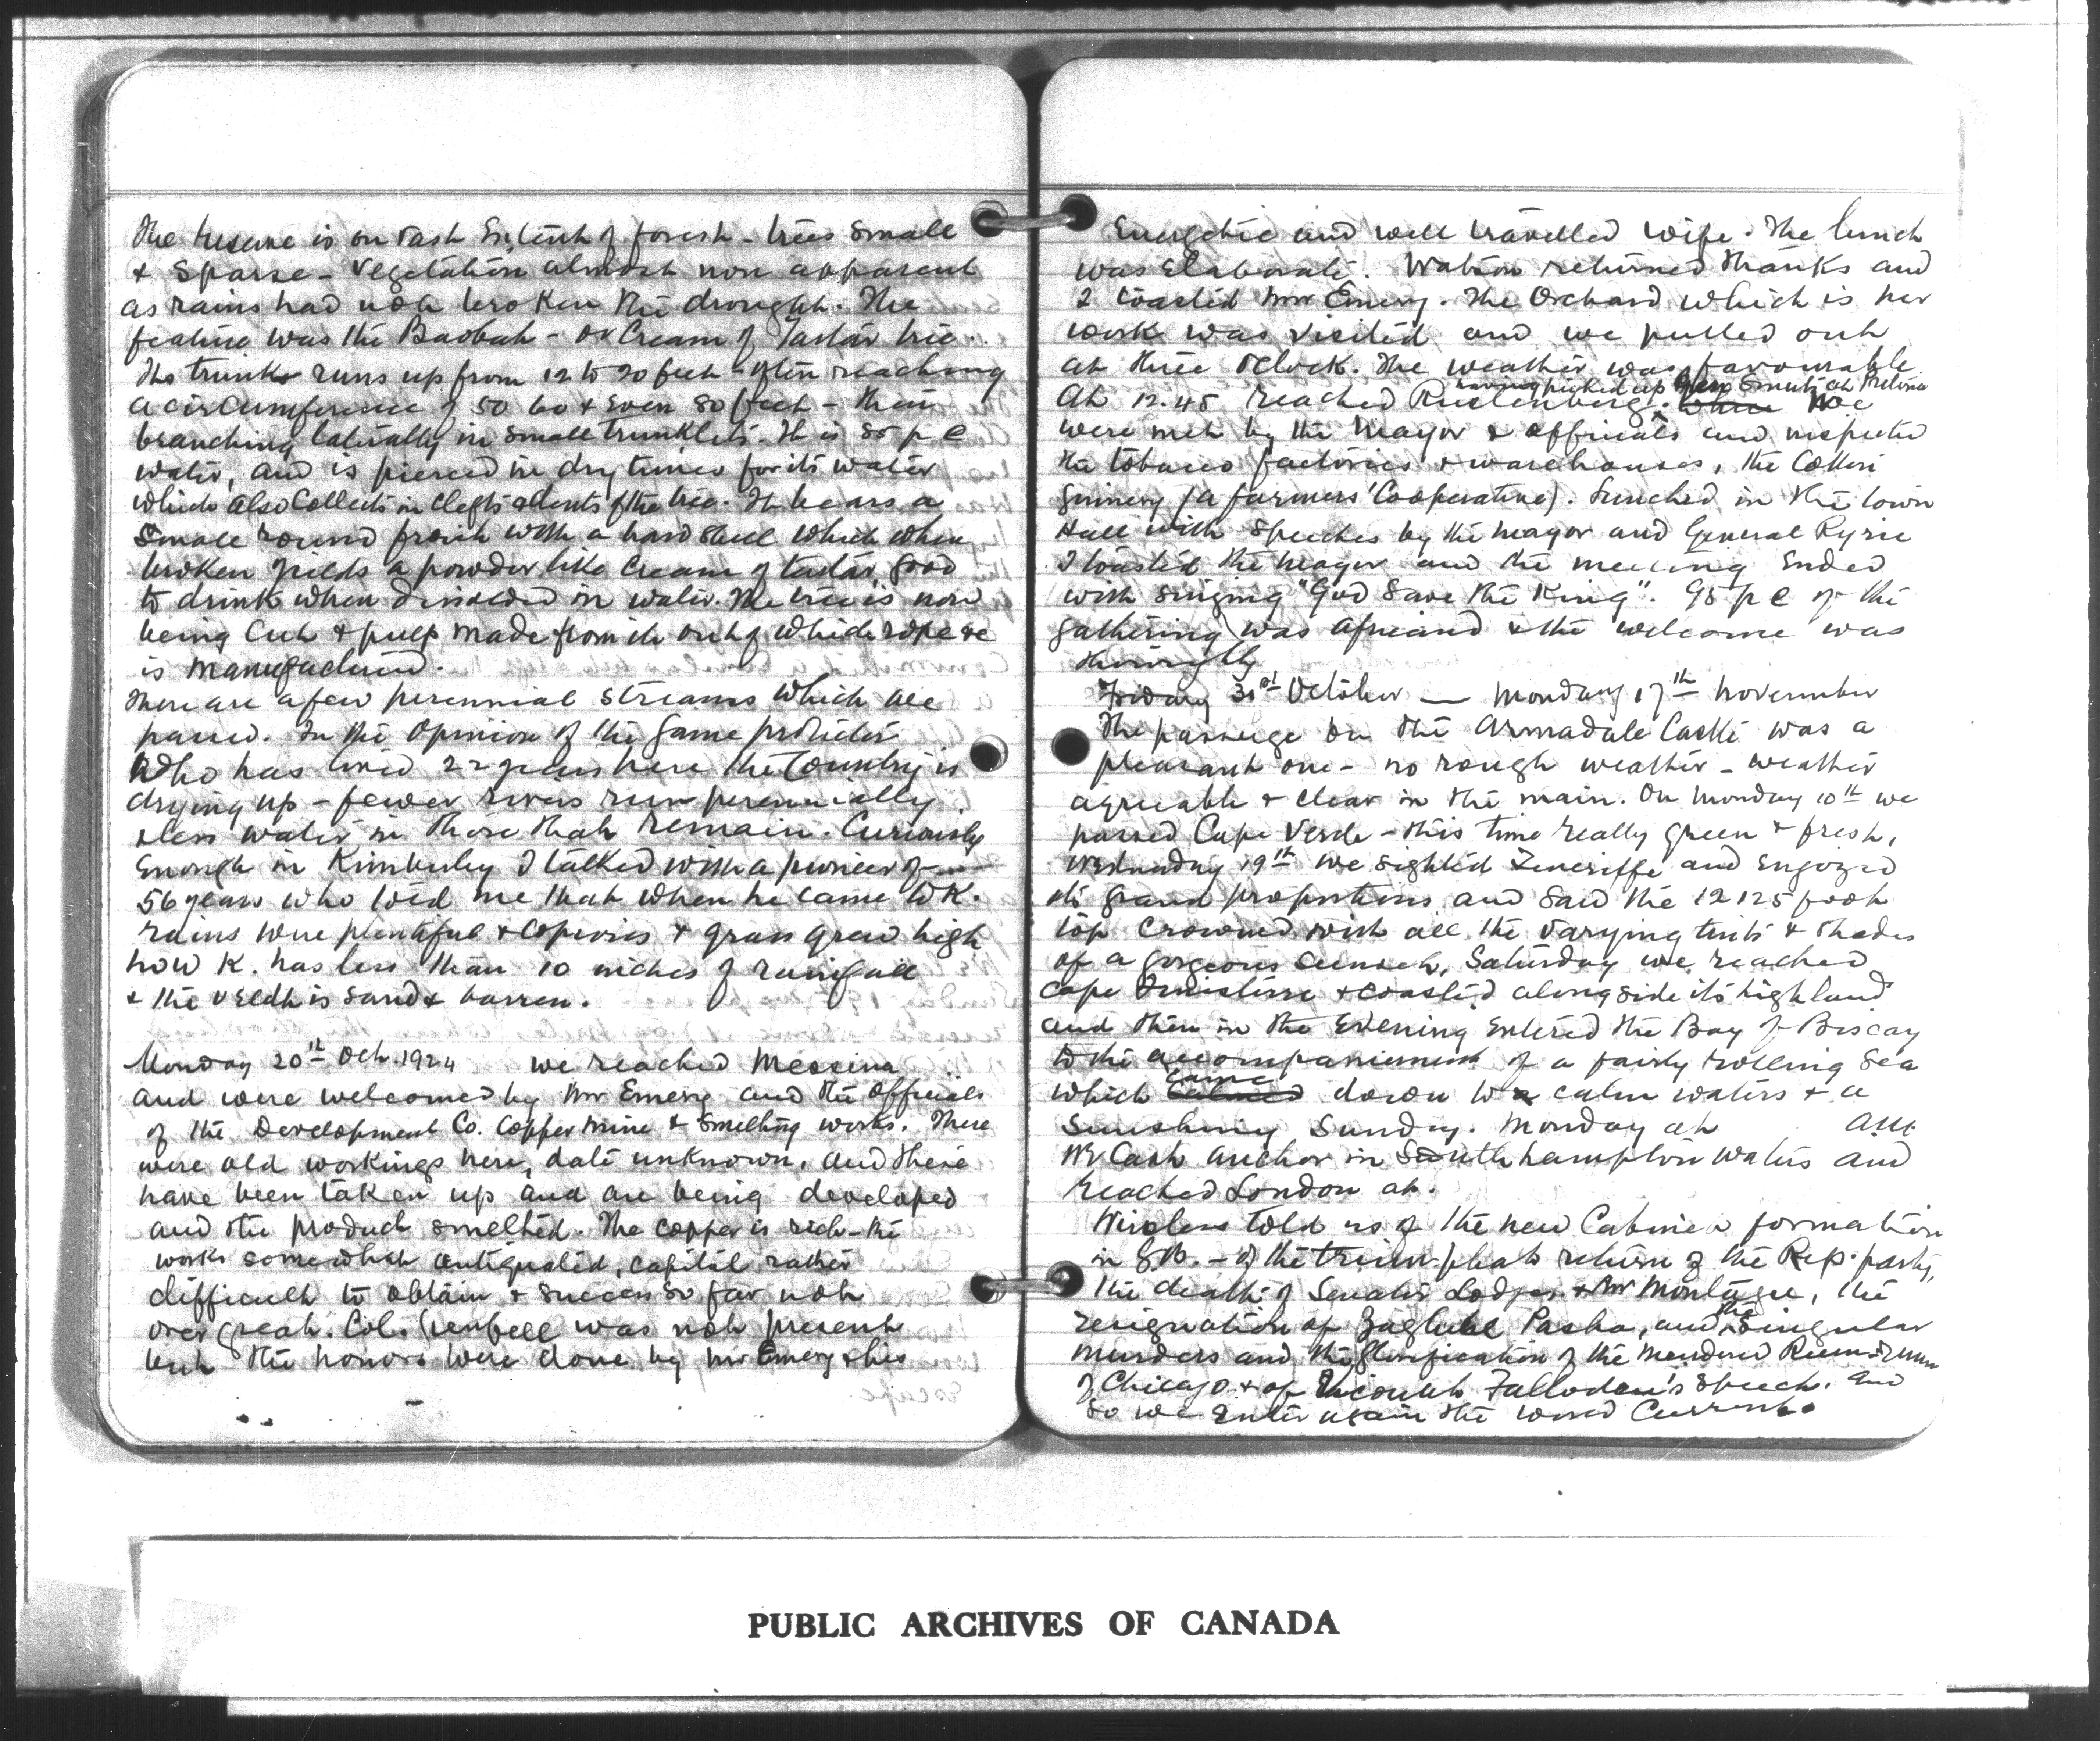 The reserve is on vast Extent of forest - trees small
& sparse - vegetation almost non apparent
as rains had not broken the drought. The
feature was the Baobab - or Cream of Tartar tree.
Its trunk runs up from 12 to 20 feet - often reaching
a circumference of 50 60 & even 80 feet - then
branching laterally in small trunklets. It is 85 p c
water, and is pierced in dry times for its water
which also collects in clefts & dents of the tree. It bears a
small round fruit with a hard shell which when
broken yields a powder like Cream of tartar, good
to drink when dissolved in water. The tree is now
being cut & pulp made from it out of which rope &c
is manufactured.
There are a few perennial streams which we
passed. In the opinion of the game protector
who has lived 22 years here the country is
drying up - fewer rivers run perennially
& less water in those that remain. Curiously
Enough in Kimberley I talked with a pioneer of
56 years who told me that when he came to K.
rains were plentiful & copious & grass grew high
now K. has less than 10 inches of rainfall
& the veldt is sand & barren.
Monday 20th Oct. 1924 we reached Messina
and were welcomed by Mr Emery and the officials
of the Development Co. Copper mine & Smelting works. There
were old workings here, date unknown, and these
have been taken up and are being developed
and the product smelted. The copper is rich - the
works somewhat antiquated, capital rather
difficult to obtain & success so far not
over great. Col. Grenfell was not present
but the honors were done by Mr Emery & his
Energetic and well travelled wife. The lunch
was elaborate. Watson returned thanks and
I toasted Mrs Emery. The Orchard which is her
work was visited and we pulled out
at three oclock. The weather was favourable
having picked up Genl Smuts at Pretoria
At 12.45 reached Rustenberg. where We
were met by the Mayor & officials and inspected
the tobacco factories & warehouses, the Cotton
Ginnery (a farmers' Cooperative). Lunched in the town
Hall with speeches by the Mayor and General Ryrie
I toasted the Mayor and the meeting Ended
with singing "God Save the King". 95 p c of the
gathering was Africand & the welcome was
throughly
Friday 31st October — Monday 17th November
The passage on the Armadale Castle was a
pleasant one - no rough weather - weather
agreeable & clear in the main. On Monday 10th we
passed Cape Verde - this time really green & fresh,
Wednesday 19th we sighted Teneriffe and enjoyed
its grand proportions and saw the 12125 foot
top crowned with all the varying tints & shades
of a gorgeous sunset. Saturday we reached
Cape Finisterre & coasted alongside its highland
and then in the Evening entered the Bay of Biscay
to the accompaniement of a fairly rolling sea
which calmed came down to calm waters & a
Sunshiny Sunday. Monday at am
We Cast anchor in Southhampton Waters and
reached London at.
Wireless told us of the new Cabinet formation
in G.B. - of the triumphal return of the Rep. party,
the death of Senator Lodge & Mr Montague, the
resignation of Zaglul Pasha, and the singular
murders and the glorification of the murdered
of Chicago & of Viscount Fallodon's speech. And
So we enter again the world Current.
PUBLIC ARCHIVES OF CANADA